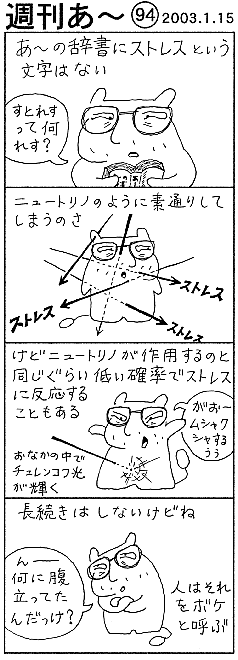 週刊あ～ 94 2003.1.15
あ～の辞書にストレスという
文字はない
すとれす
って何
れす？
ニュートリノのように素通りして
しまうのさ
ストレス
ストレス
ストレス
けどニュートリノが作用するのと
同じぐらい低い確率でストレス
に反応する
こともある
がおー
ムシャク
シャする
うぅ
おなかの中で
チェレンコフ光
が輝く
長続きはしないけどね
んー
何に腹
立ってた
んだっけ？
人はそれ
をボケ
と呼ぶ